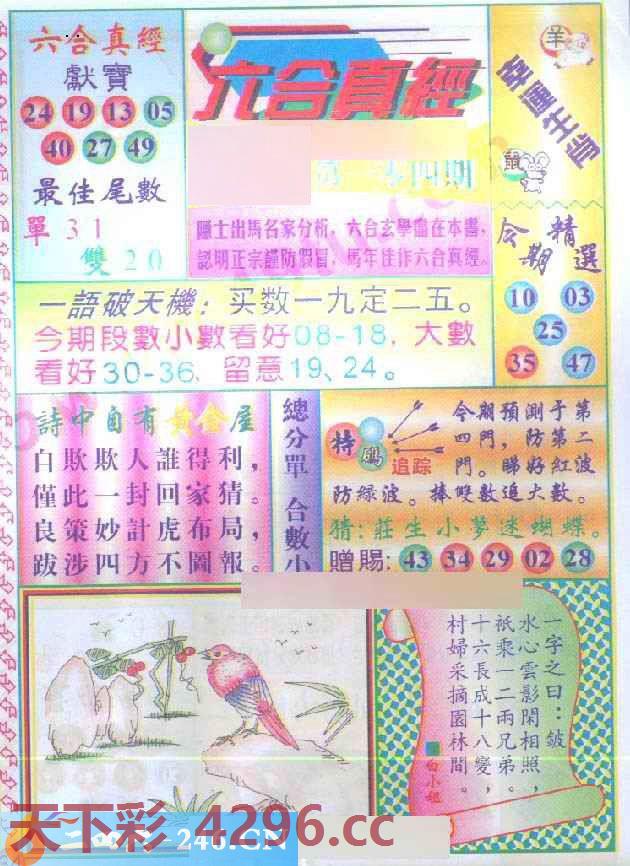 六合真經
獻寶
24 19 13 05
40 27 49
最佳尾數
單31
雙20
六合真經
零四期
隱士出馬名家分析，六合玄學盡在本書，
認明正宗謹防假冒，馬年佳作六合真經。
羊
幸運生肖
鼠
今期精選
10 03
25
35 47
一語破天機：买数一九定二五。
今期段數小數看好08-18，大數
看好30-36、留意19、24。
詩中自有黃金屋
自欺欺人誰得利，
僅此一封回家猜。
良策妙計虎布局，
跋涉四方不圖報。
總分單 合數小
特碼
追踪
今期預測于第
四門，防第二
門。睇好紅波
防綠波。捧雙數追大數。
猜：莊生小夢迷蝴蝶。
贈賜：43 34 29 02 28
一字之曰：皴
水心雲影閑相照，
祇乘一二兩兄弟。
十六長成十八變，
村婦采摘園林間。
白小姐
天下彩 4296.cc
246.CN